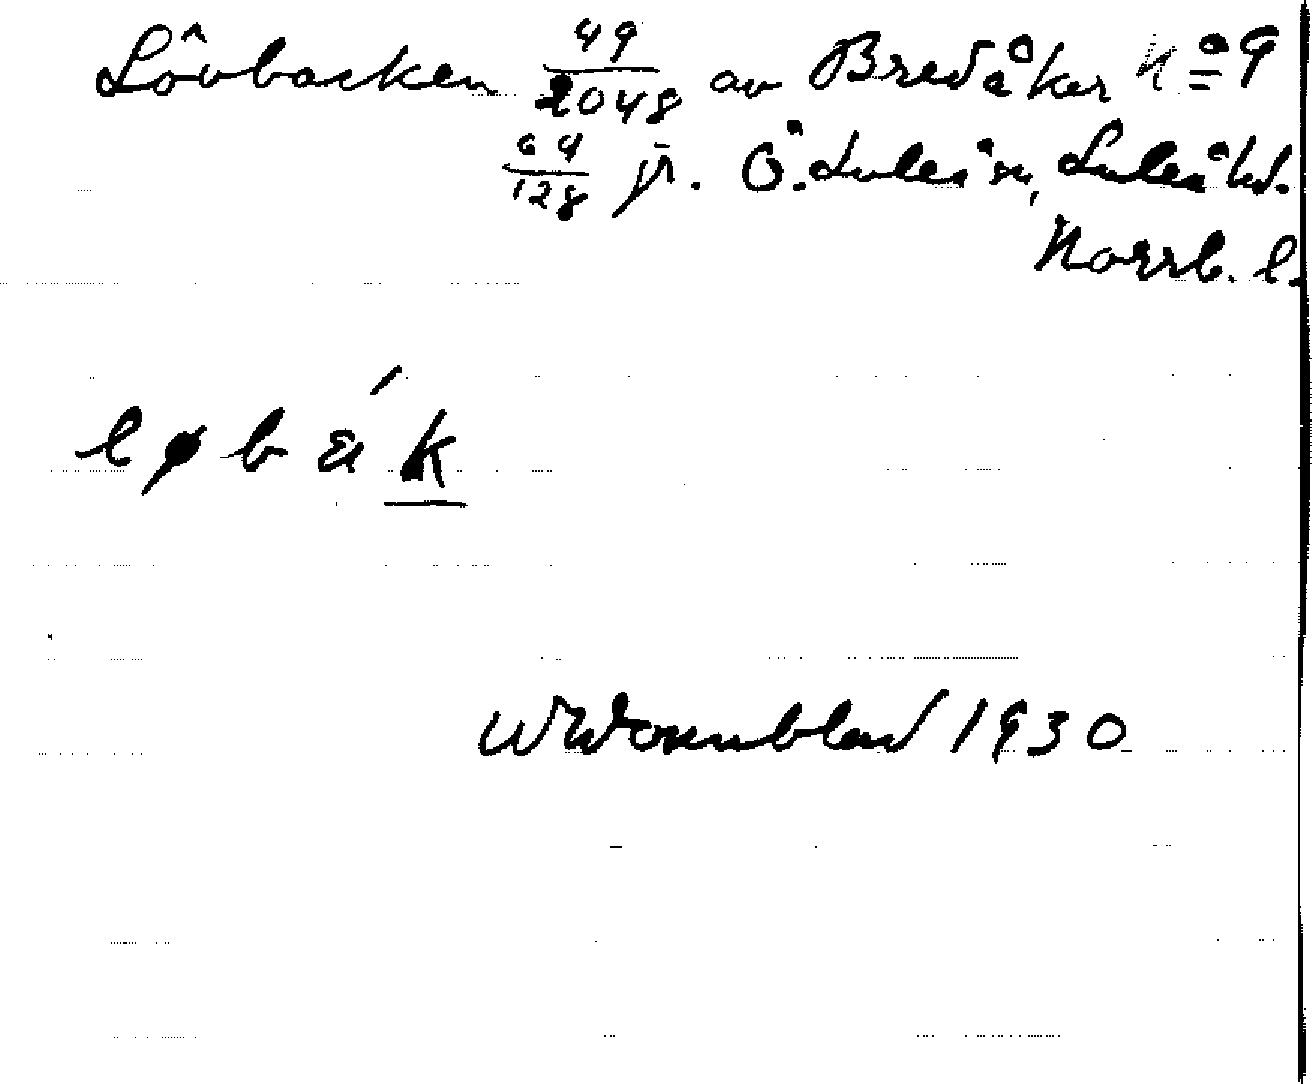 Lôvbacken 49/2048 av Bredåker No 9
64/128 jr. Ö. Luleå sn, Luleå hd.
Norrb. l.
løbá̤k
1930